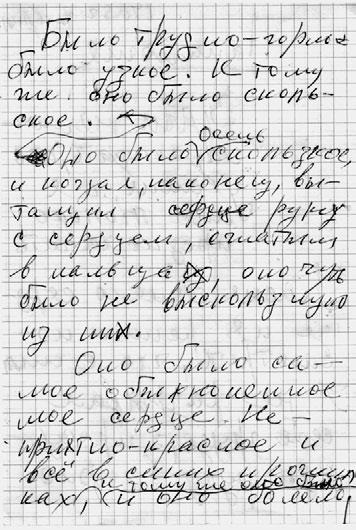 Было трудно-горло
было узкое. К тому
же оно было сколь-
ское.
очень
Оно было скользкое,
и когда я, наконец, вы-
тащил сердце руку
с сердцем, сжатым
в пальцах, оно чуть
было не выскользнуло
из них.
Оно было са-
мое обыкновенное
мое сердце. Не-
приятно-красное и
всё в синих прожил-
и к тому же оно было
ках, и оно болело,